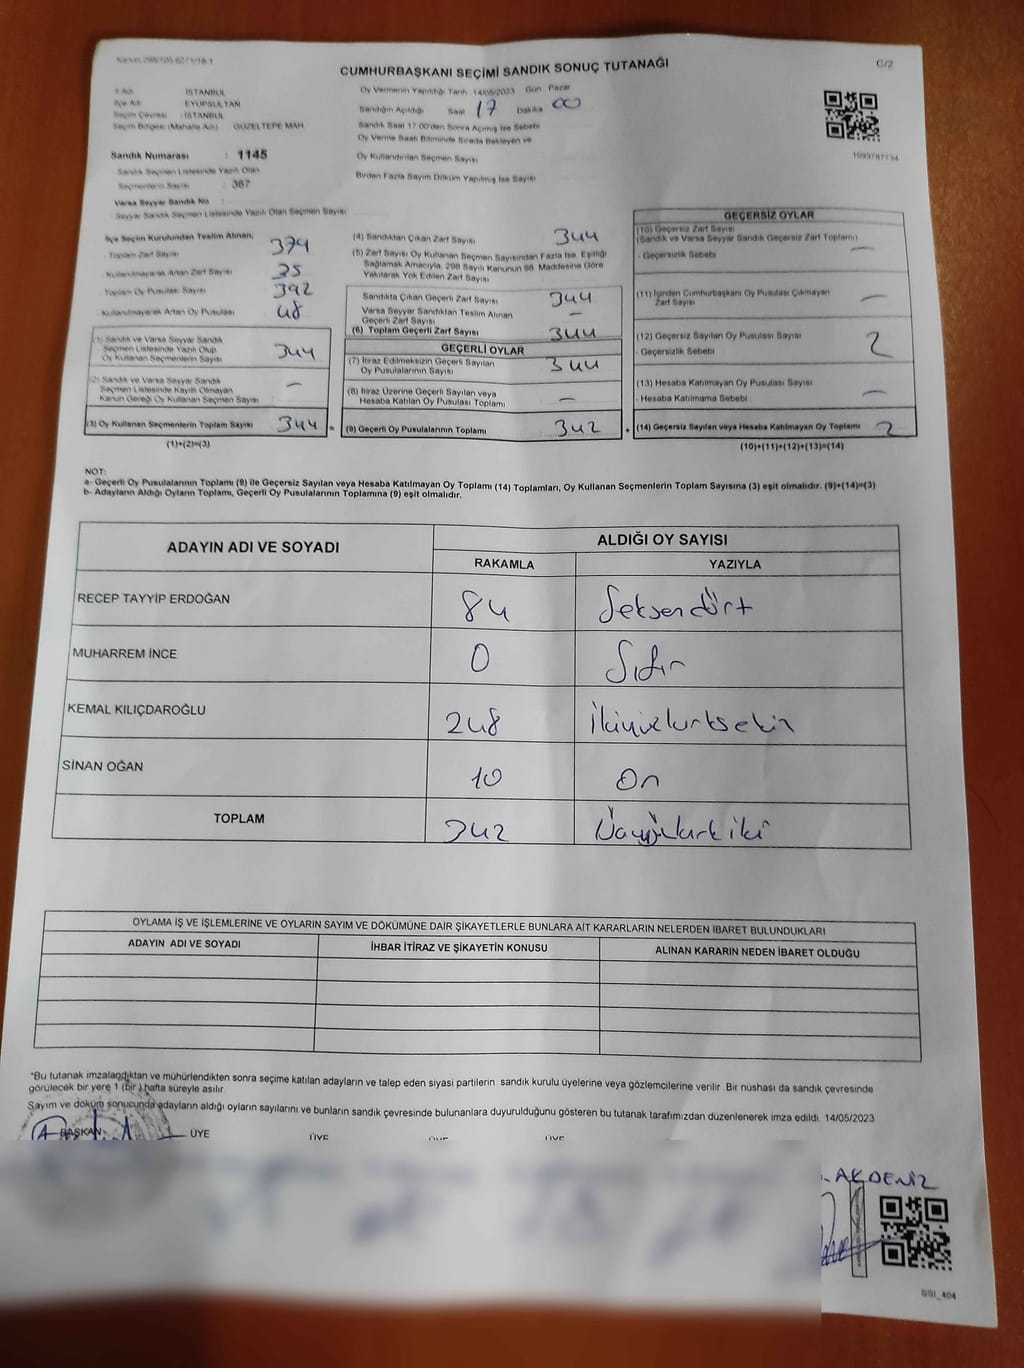 Kanun:298/105.6271/18.1
CUMHURBAŞKANI SEÇİMİ SANDIK SONUÇ TUTANAĞI
C/2
İl Adı : İSTANBUL
İlçe Adı : EYÜPSULTAN
Seçim Çevresi : İSTANBUL
Seçim Bölgesi (Mahalle Adı) : GÜZELTEPE MAH.
Sandık Numarası : 1145
Sandık Seçmen Listesinde Yazılı Olan
Seçmenlerin Sayısı : 367
Varsa Seyyar Sandık No
Seyyar Sandık Seçmen Listesinde Yazılı Olan Seçmen Sayısı
Oy Vermenin Yapıldığı Tarih 14/05/2023 Gün Pazar
Sandığın Açıldığı Saat 17 Dakika 00
Sandık Saat 17:00'den Sonra Açılmış İse Sebebi
Oy Verme Saati Bitiminde Sırada Bekleyen ve
Oy Kullandırılan Seçmen Sayısı
Birden Fazla Sayım Döküm Yapılmış İse Sayısı
1093787734
İlçe Seçim Kurulundan Teslim Alınan;
- Toplam Zarf Sayısı 379
- Kullanılmayarak Artan Zarf Sayısı 35
Toplam Oy Pusulası Sayısı 392
- Kullanılmayarak Artan Oy Pusulası 48
(1) Sandık ve Varsa Seyyar Sandık
Seçmen Listesinde Yazılı Olup
Oy Kullanan Seçmenlerin Sayısı 344
(2) Sandık ve Varsa Seyyar Sandık
Seçmen Listesinde Kayıtlı Olmayan
Kanun Gereği Oy Kullanan Seçmen Sayısı –
(3) Oy Kullanan Seçmenlerin Toplam Sayısı 344 =
(1)+(2)=(3)
(4) Sandıktan Çıkan Zarf Sayısı 344
(5) Zarf Sayısı Oy Kullanan Seçmen Sayısından Fazla İse, Eşitliği
Sağlamak Amacıyla, 298 Sayılı Kanunun 98. Maddesine Göre
Yakılarak Yok Edilen Zarf Sayısı
Sandıkta Çıkan Geçerli Zarf Sayısı 344
Varsa Seyyar Sandıktan Teslim Alınan
Geçerli Zarf Sayısı –
(6) Toplam Geçerli Zarf Sayısı 344
GEÇERLİ OYLAR
(7) İtiraz Edilmeksizin Geçerli Sayılan
Oy Pusulalarının Sayısı 344
(8) İtiraz Üzerine Geçerli Sayılan veya
Hesaba Katılan Oy Pusulası Toplamı –
(9) Geçerli Oy Pusulalarının Toplamı 342 +
GEÇERSİZ OYLAR
(10) Geçersiz Zarf Sayısı
(Sandık ve Varsa Seyyar Sandık Geçersiz Zarf Toplamı) –
- Geçersizlik Sebebi
(11) İçinden Cumhurbaşkanı Oy Pusulası Çıkmayan
Zarf Sayısı –
(12) Geçersiz Sayılan Oy Pusulası Sayısı 2
- Geçersizlik Sebebi
(13) Hesaba Katılmayan Oy Pusulası Sayısı –
- Hesaba Katılmama Sebebi
(14) Geçersiz Sayılan veya Hesaba Katılmayan Oy Toplamı 2
(10)+(11)+(12)+(13)=(14)
NOT:
a- Geçerli Oy Pusulalarının Toplamı (9) ile Geçersiz Sayılan veya Hesaba Katılmayan Oy Toplamı (14) Toplamları, Oy Kullanan Seçmenlerin Toplam Sayısına (3) eşit olmalıdır. (9)+(14)=(3)
b- Adayların Aldığı Oyların Toplamı, Geçerli Oy Pusulalarının Toplamına (9) eşit olmalıdır.
ADAYIN ADI VE SOYADI
ALDIĞI OY SAYISI
RAKAMLA YAZIYLA
RECEP TAYYİP ERDOĞAN 84 Seksendört
MUHARREM İNCE 0 Sıfır
KEMAL KILIÇDAROĞLU 248 İkiyüzkırksekiz
SİNAN OĞAN 10 On
TOPLAM 342 Üçyüzkırkiki
OYLAMA İŞ VE İŞLEMLERİNE VE OYLARIN SAYIM VE DÖKÜMÜNE DAİR ŞİKAYETLERLE BUNLARA AİT KARARLARIN NELERDEN İBARET BULUNDUKLARI
ADAYIN ADI VE SOYADI İHBAR İTİRAZ VE ŞİKAYETİN KONUSU ALINAN KARARIN NEDEN İBARET OLDUĞU
"Bu tutanak imzalandıktan ve mühürlendikten sonra seçime katılan adayların ve talep eden siyasi partilerin sandık kurulu üyelerine veya gözlemcilerine verilir. Bir nüshası da sandık çevresinde
görülecek bir yere 1 (bir) hafta süreyle asılır.
Sayım ve döküm sonucunda adayların aldığı oyların sayılarını ve bunların sandık çevresinde bulunanlara duyurulduğunu gösteren bu tutanak tarafımızdan düzenlenerek imza edildi. 14/05/2023
BAŞKAN ÜYE ÜYE ÜYE ÜYE
AKDENİZ
SSI_404